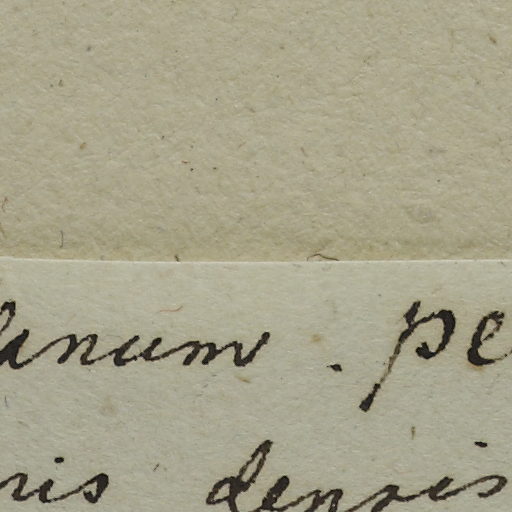 lanum . pe
ris densis